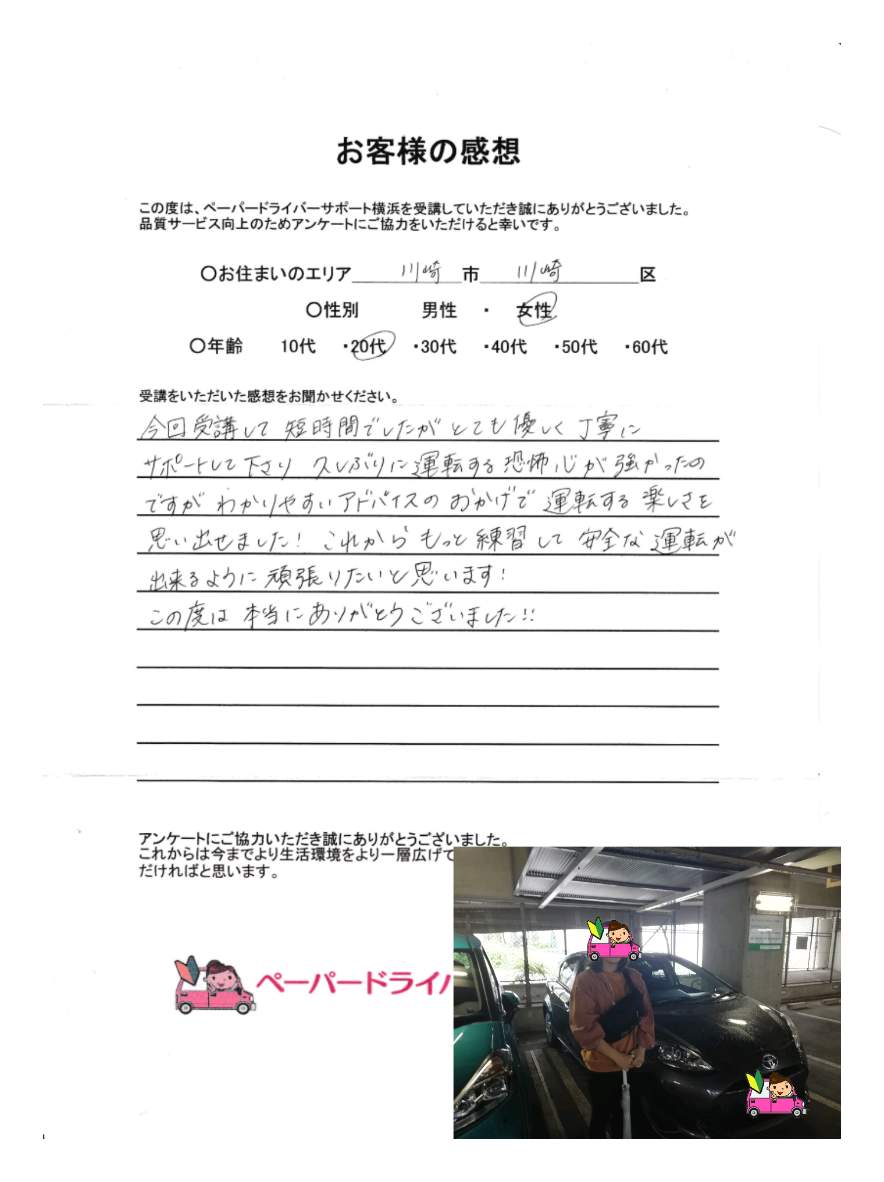 お客様の感想
この度は、ペーパードライバーサポート横浜を受講していただき誠にありがとうございました。
品質サービス向上のためアンケートにご協力をいただけると幸いです。
〇お住まいのエリア 川崎 市 川崎 区
〇性別 男性 ・ 女性
〇年齢 10代 ・20代 ・30代 ・40代 ・50代 ・60代
受講をいただいた感想をお聞かせください。
今回受講して 短時間でしたが とても優しく 丁寧に
サポートして下さり 久しぶりに運転する恐怖心が強かったの
ですが わかりやすいアドバイスの おかげで 運転する 楽しさを
思い出せました! これから もっと 練習して 安全な 運転が
出来るように 頑張りたいと思います!
この度は 本当に ありがとうございました!!
アンケートにご協力いただき誠にありがとうございました。
これからは今までより生活環境をより一層広げて
だければと思います。
ペーパードライバ